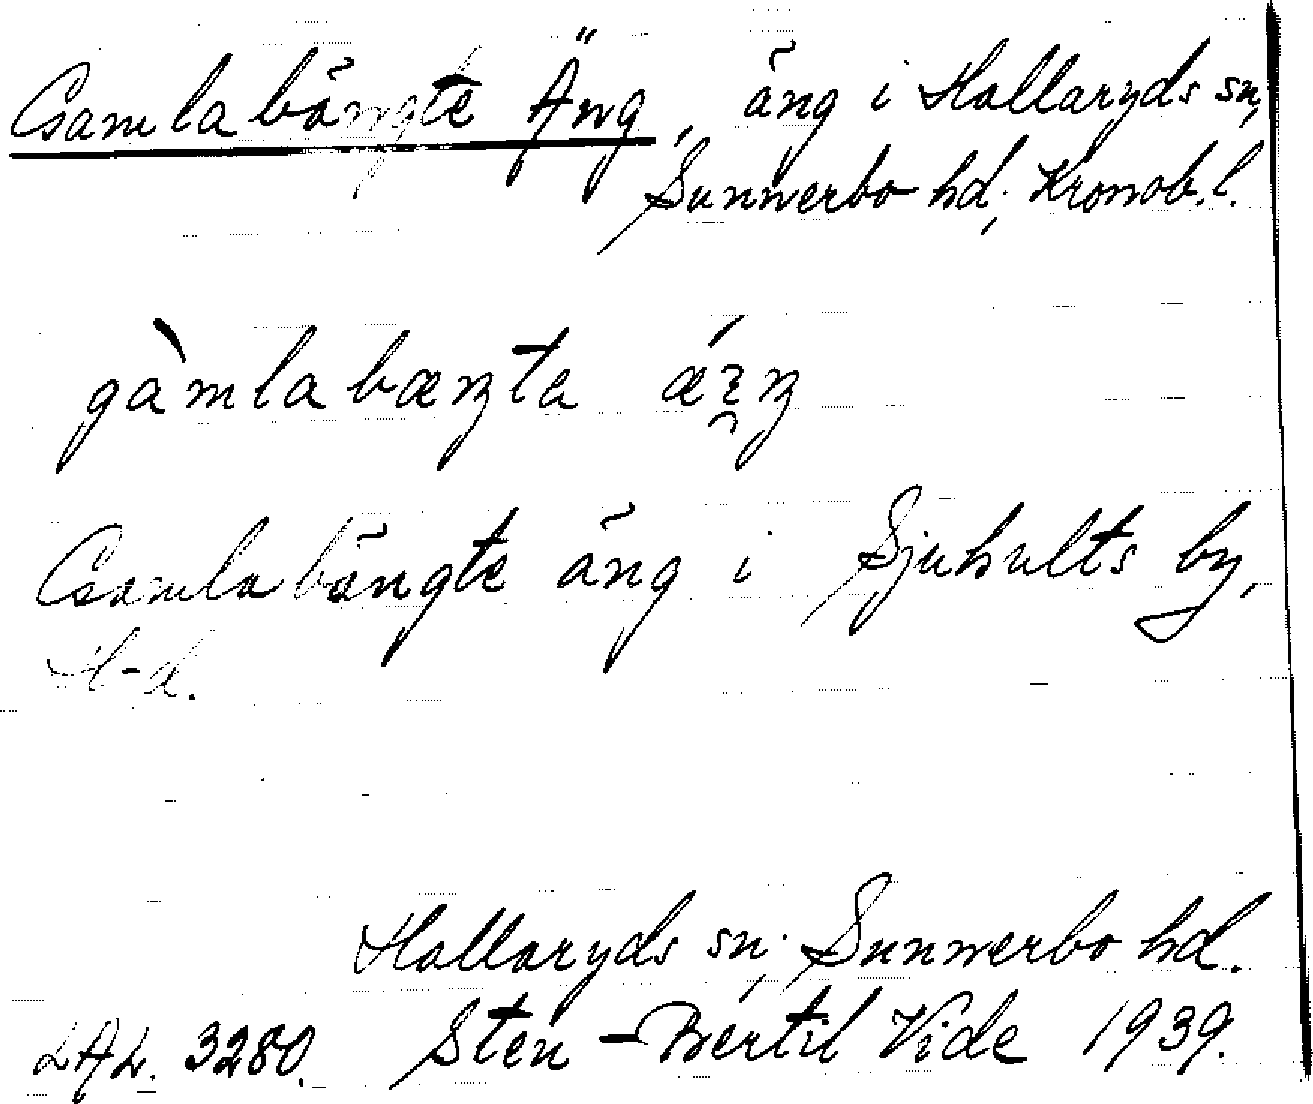 Gamla bängte Äng, äng i Hallaryds sn,
Sunnerbo hd, Kronob. l.
gàmla bæŋta ǽŋ
Gamla bängte äng i Sjuhults by,
H-d.
Hallaryds sn, Sunnerbo hd.
LAL. 3280. Sten-Bertil Vide 1939.